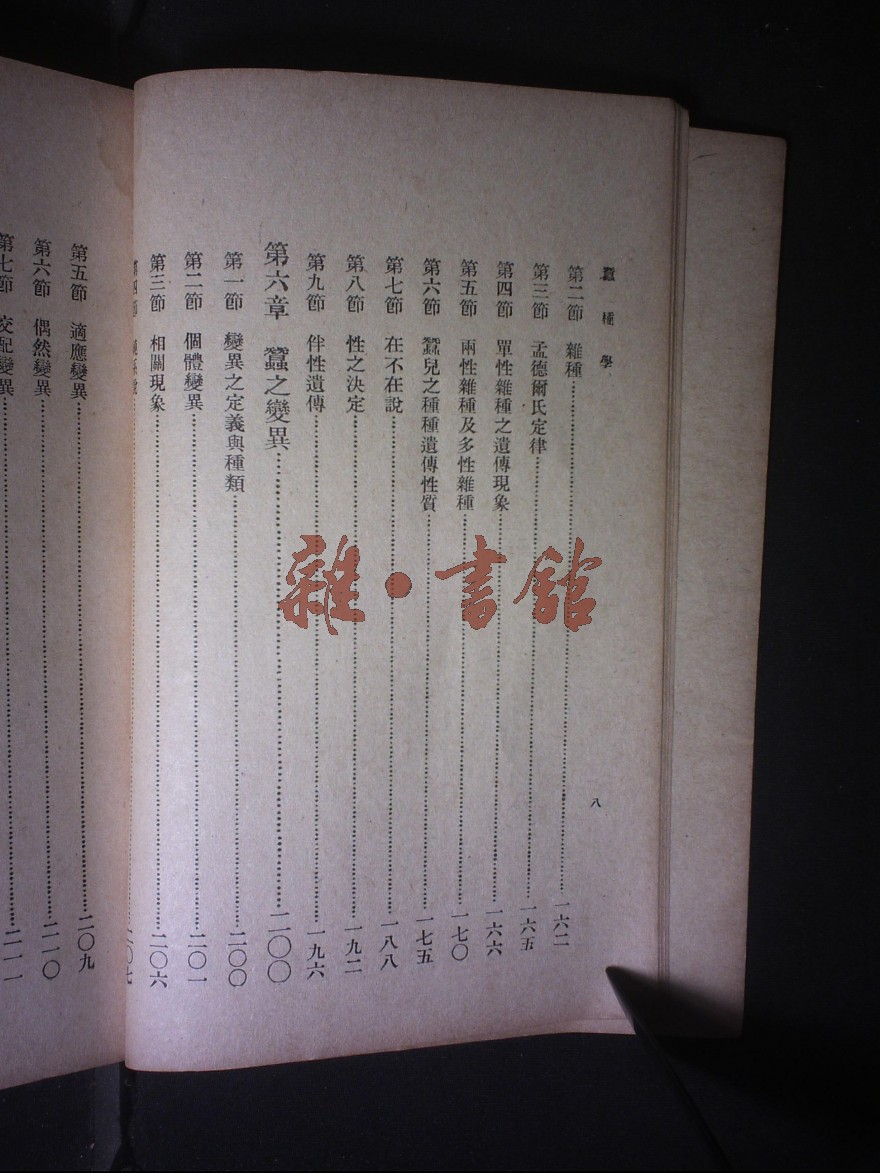 蠶種學
八
第二節 雜種……一六二
第三節 孟德爾氏定律……一六五
第四節 單性雜種之遺傳現象……一六六
第五節 兩性雜種及多性雜種……一七〇
第六節 蠶兒之種種遺傳性質……一七五
第七節 在不在說……一八八
第八節 性之決定……一九二
第九節 伴性遺傳……一九六
第六章 蠶之變異……二〇〇
第一節 變異之定義與種類……二〇〇
第二節 個體變異……二〇一
第三節 相關現象……二〇六
第四節……二〇七
第五節 適應變異……二〇九
第六節 偶然變異……二一〇
第七節 交配變異……二一一
雜·書館